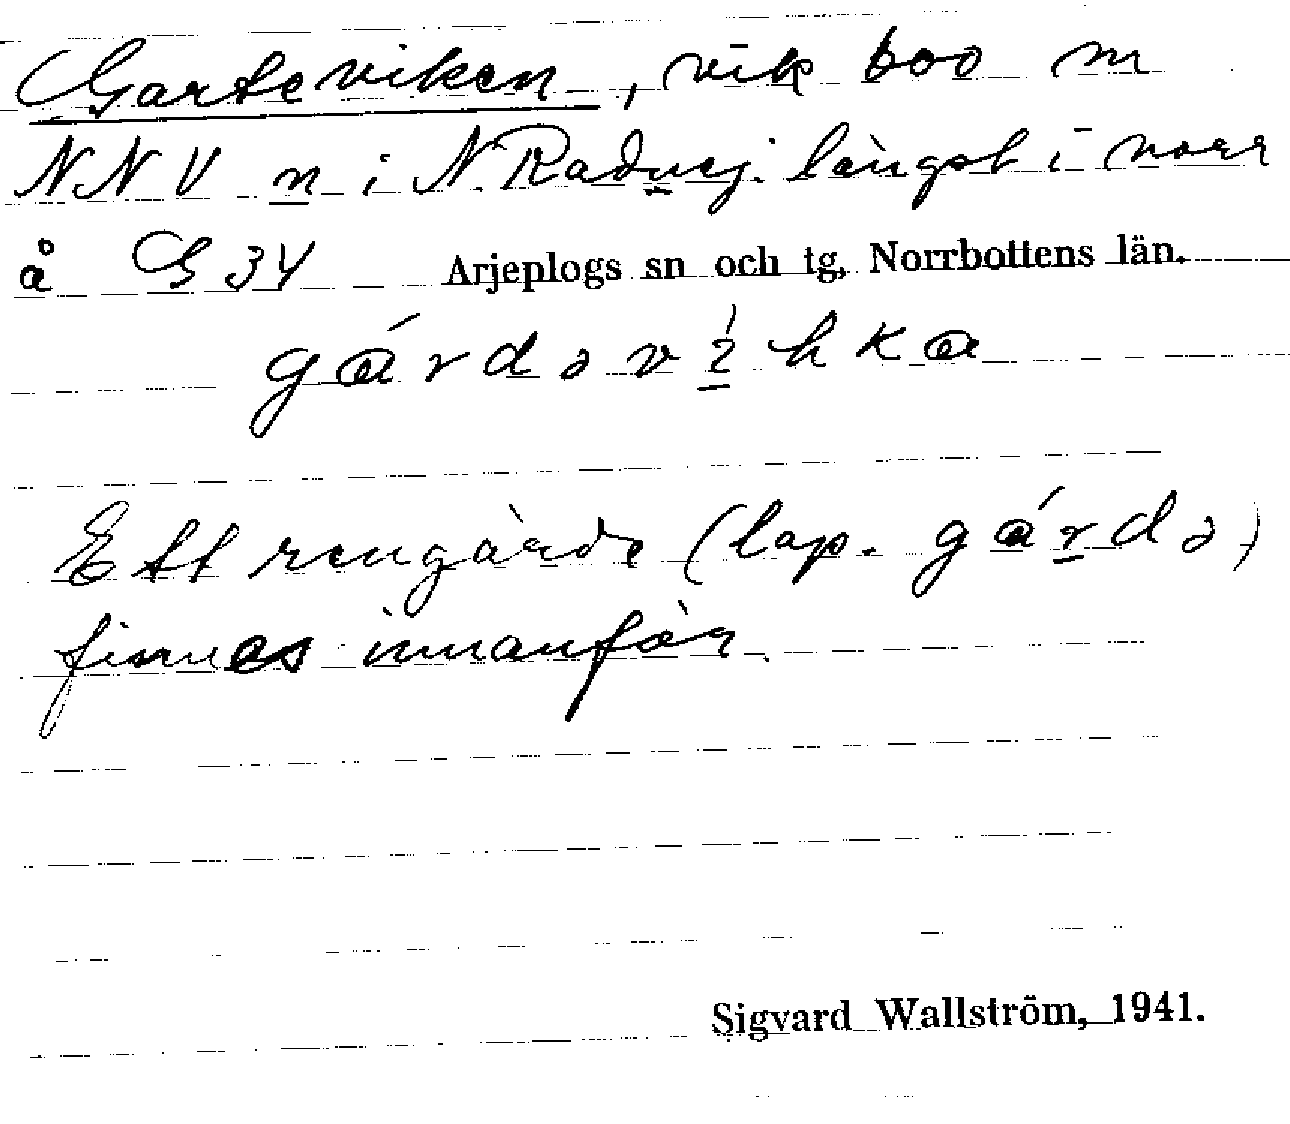 Garteviken, vik 600 m
NNV n i N. Radnej. längst i norr
å G 34 Arjeplogs sn och tg, Norrbottens län.
gárdəvìhka
Ett rengärde (lap. gárdə)
finnes innanför.
Sigvard Wallström, 1941.